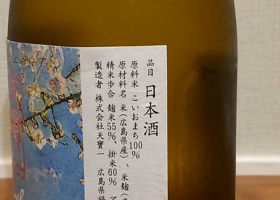 品目 日本酒
原料米 こいおまち100%
原材料名 米(広島県産)、米麹
精米歩合 麹米55%、掛米60%
製造者 株式会社天寶一 広島県